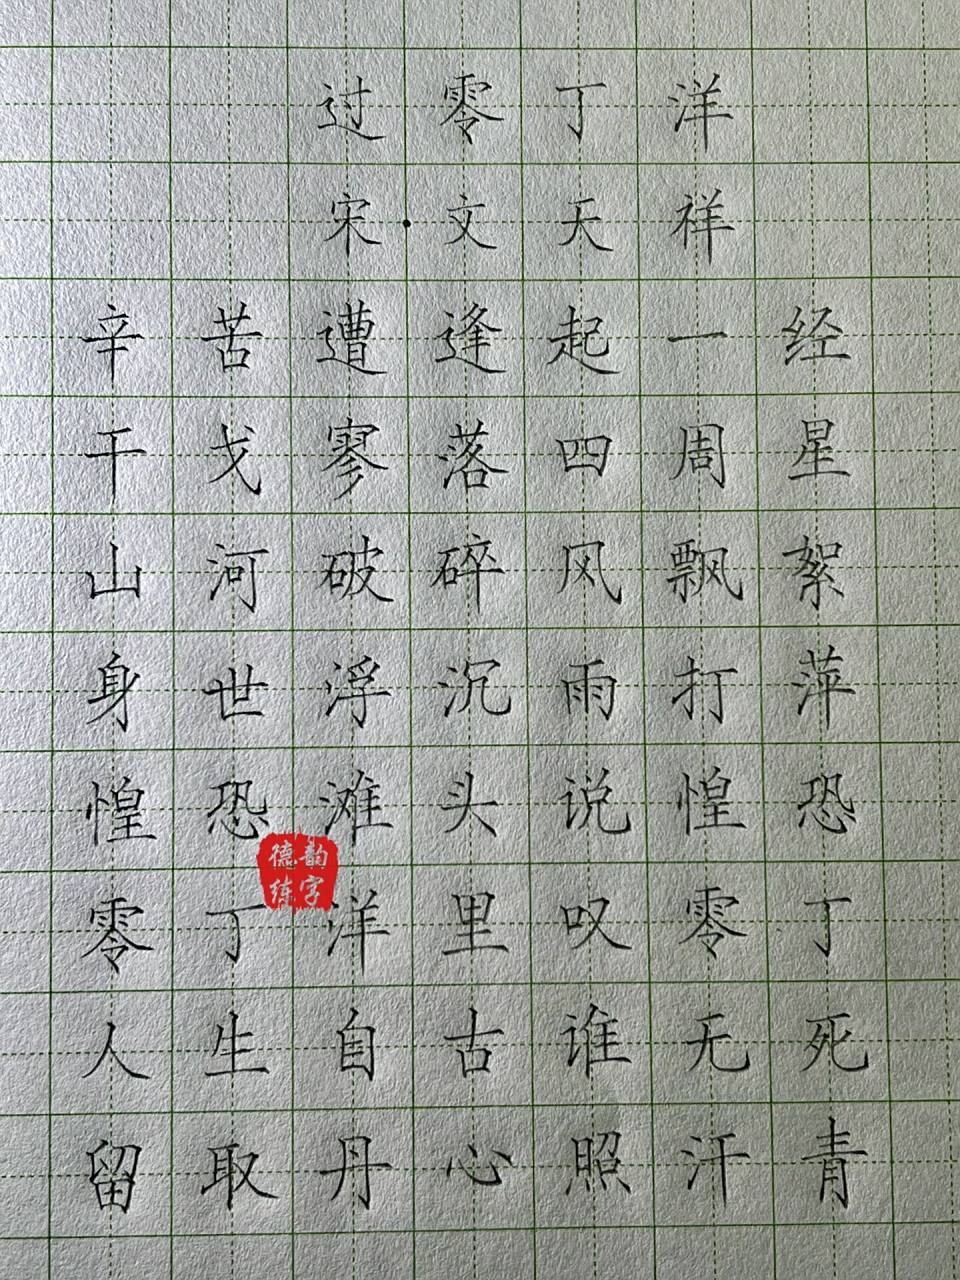 过零丁洋
宋·文天祥
辛苦遭逢起一经
干戈寥落四周星
山河破碎风飘絮
身世浮沉雨打萍
惶恐滩头说惶恐
零丁洋里叹零丁
人生自古谁无死
留取丹心照汗青
德韵
练字